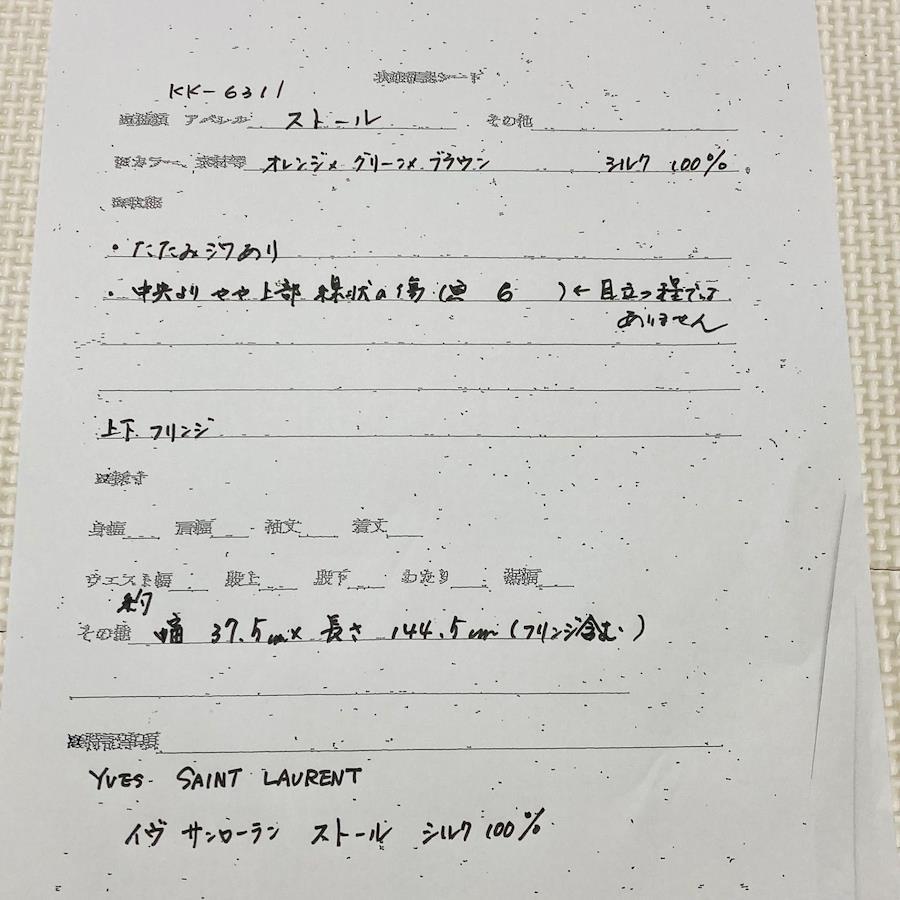 状態確認シート
KK-6311
アパレル ストール その他
カラー、素材等 オレンジ×グリーン×ブラウン シルク 100%
状態
・たたみジワあり
・中央よりやや上部 線状の傷 ( 6 )←目立つ程では
ありません
上下フリンジ
身幅 肩幅 袖丈 着丈
ウエスト幅 股上 股下 わたり 裾幅
約
その他 幅 37.5cm×長さ 144.5cm(フリンジ含む)
特記事項
YVES SAINT LAURENT
イヴ サンローラン ストール シルク100%